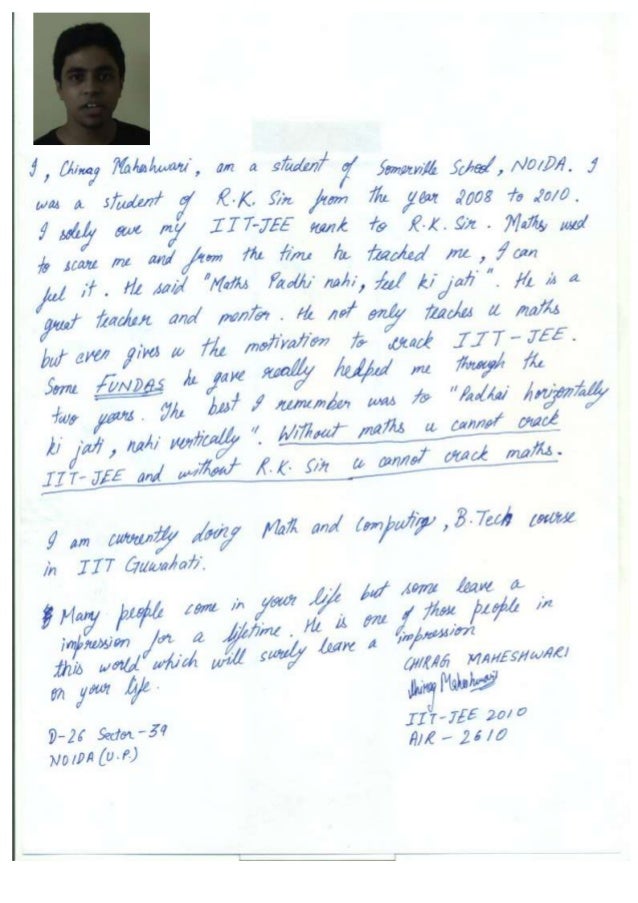 I, Chirag Maheshwari, am a student of Somerville School, NOIDA. I
was a student of R.K. Sir from the year 2008 to 2010.
I solely owe my IIT-JEE rank to R.K. Sir. Maths used
to scare me and from the time he teached me, I can
feel it. He said "Maths Padhi nahi, feel ki jati". He is a
great teacher and mentor. He not only teaches u maths
but even gives u the motivation to crack IIT-JEE.
Some FUNDAS he gave really helped me through the
two years. The best I remember was to "Padhai horizontally
ki jati, nahi vertically". Without maths u cannot crack
IIT-JEE and without R.K. Sir u cannot crack maths.
I am currently doing Math and Computing, B.Tech course
in IIT Guwahati.
Many people come in your life but some leave a
impression for a lifetime. He is one of those people in
this world which will surely leave a impression
on your life.
CHIRAG MAHESHWARI
Chirag Maheshwari
IIT-JEE 2010
AIR - 2610
D-26 Sector-39
NOIDA (U.P.)